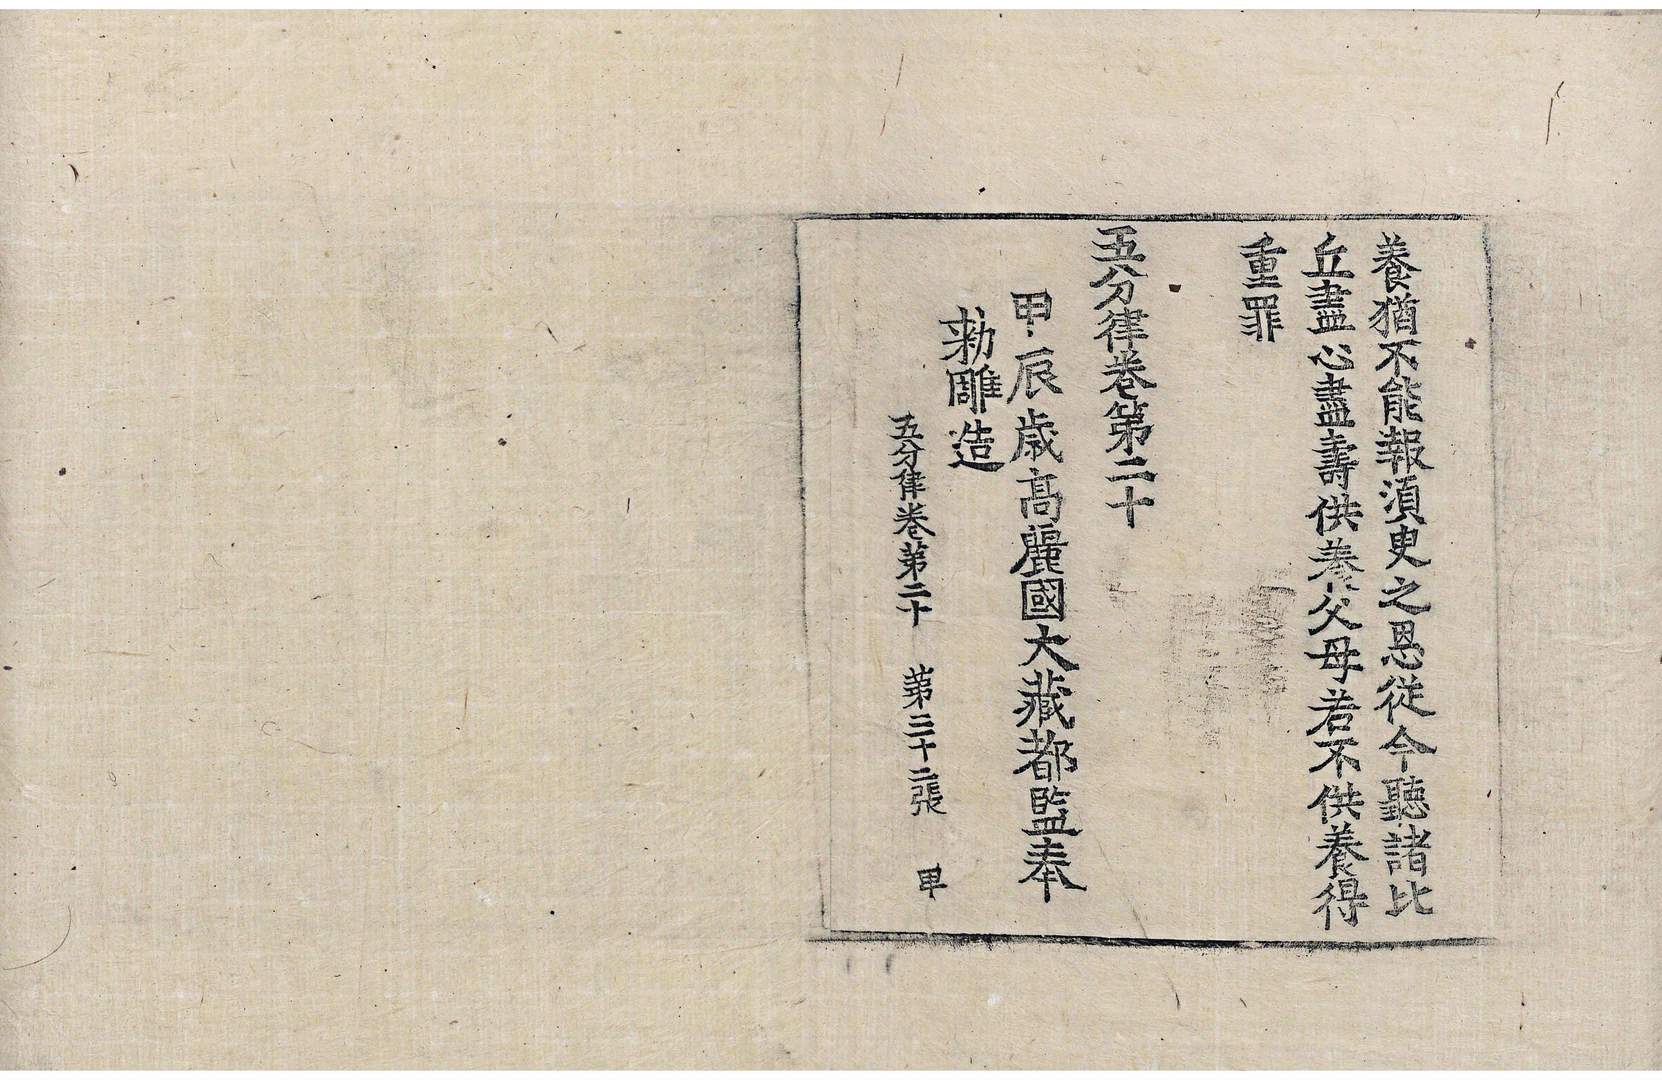 養猶不能報須臾之恩從今聽諸比
丘盡心盡壽供養父母若不供養得
重罪
五分律卷第二十
甲辰歳高麗國大藏都監奉
勅雕造
五分律卷第二十 第三十二張 甲